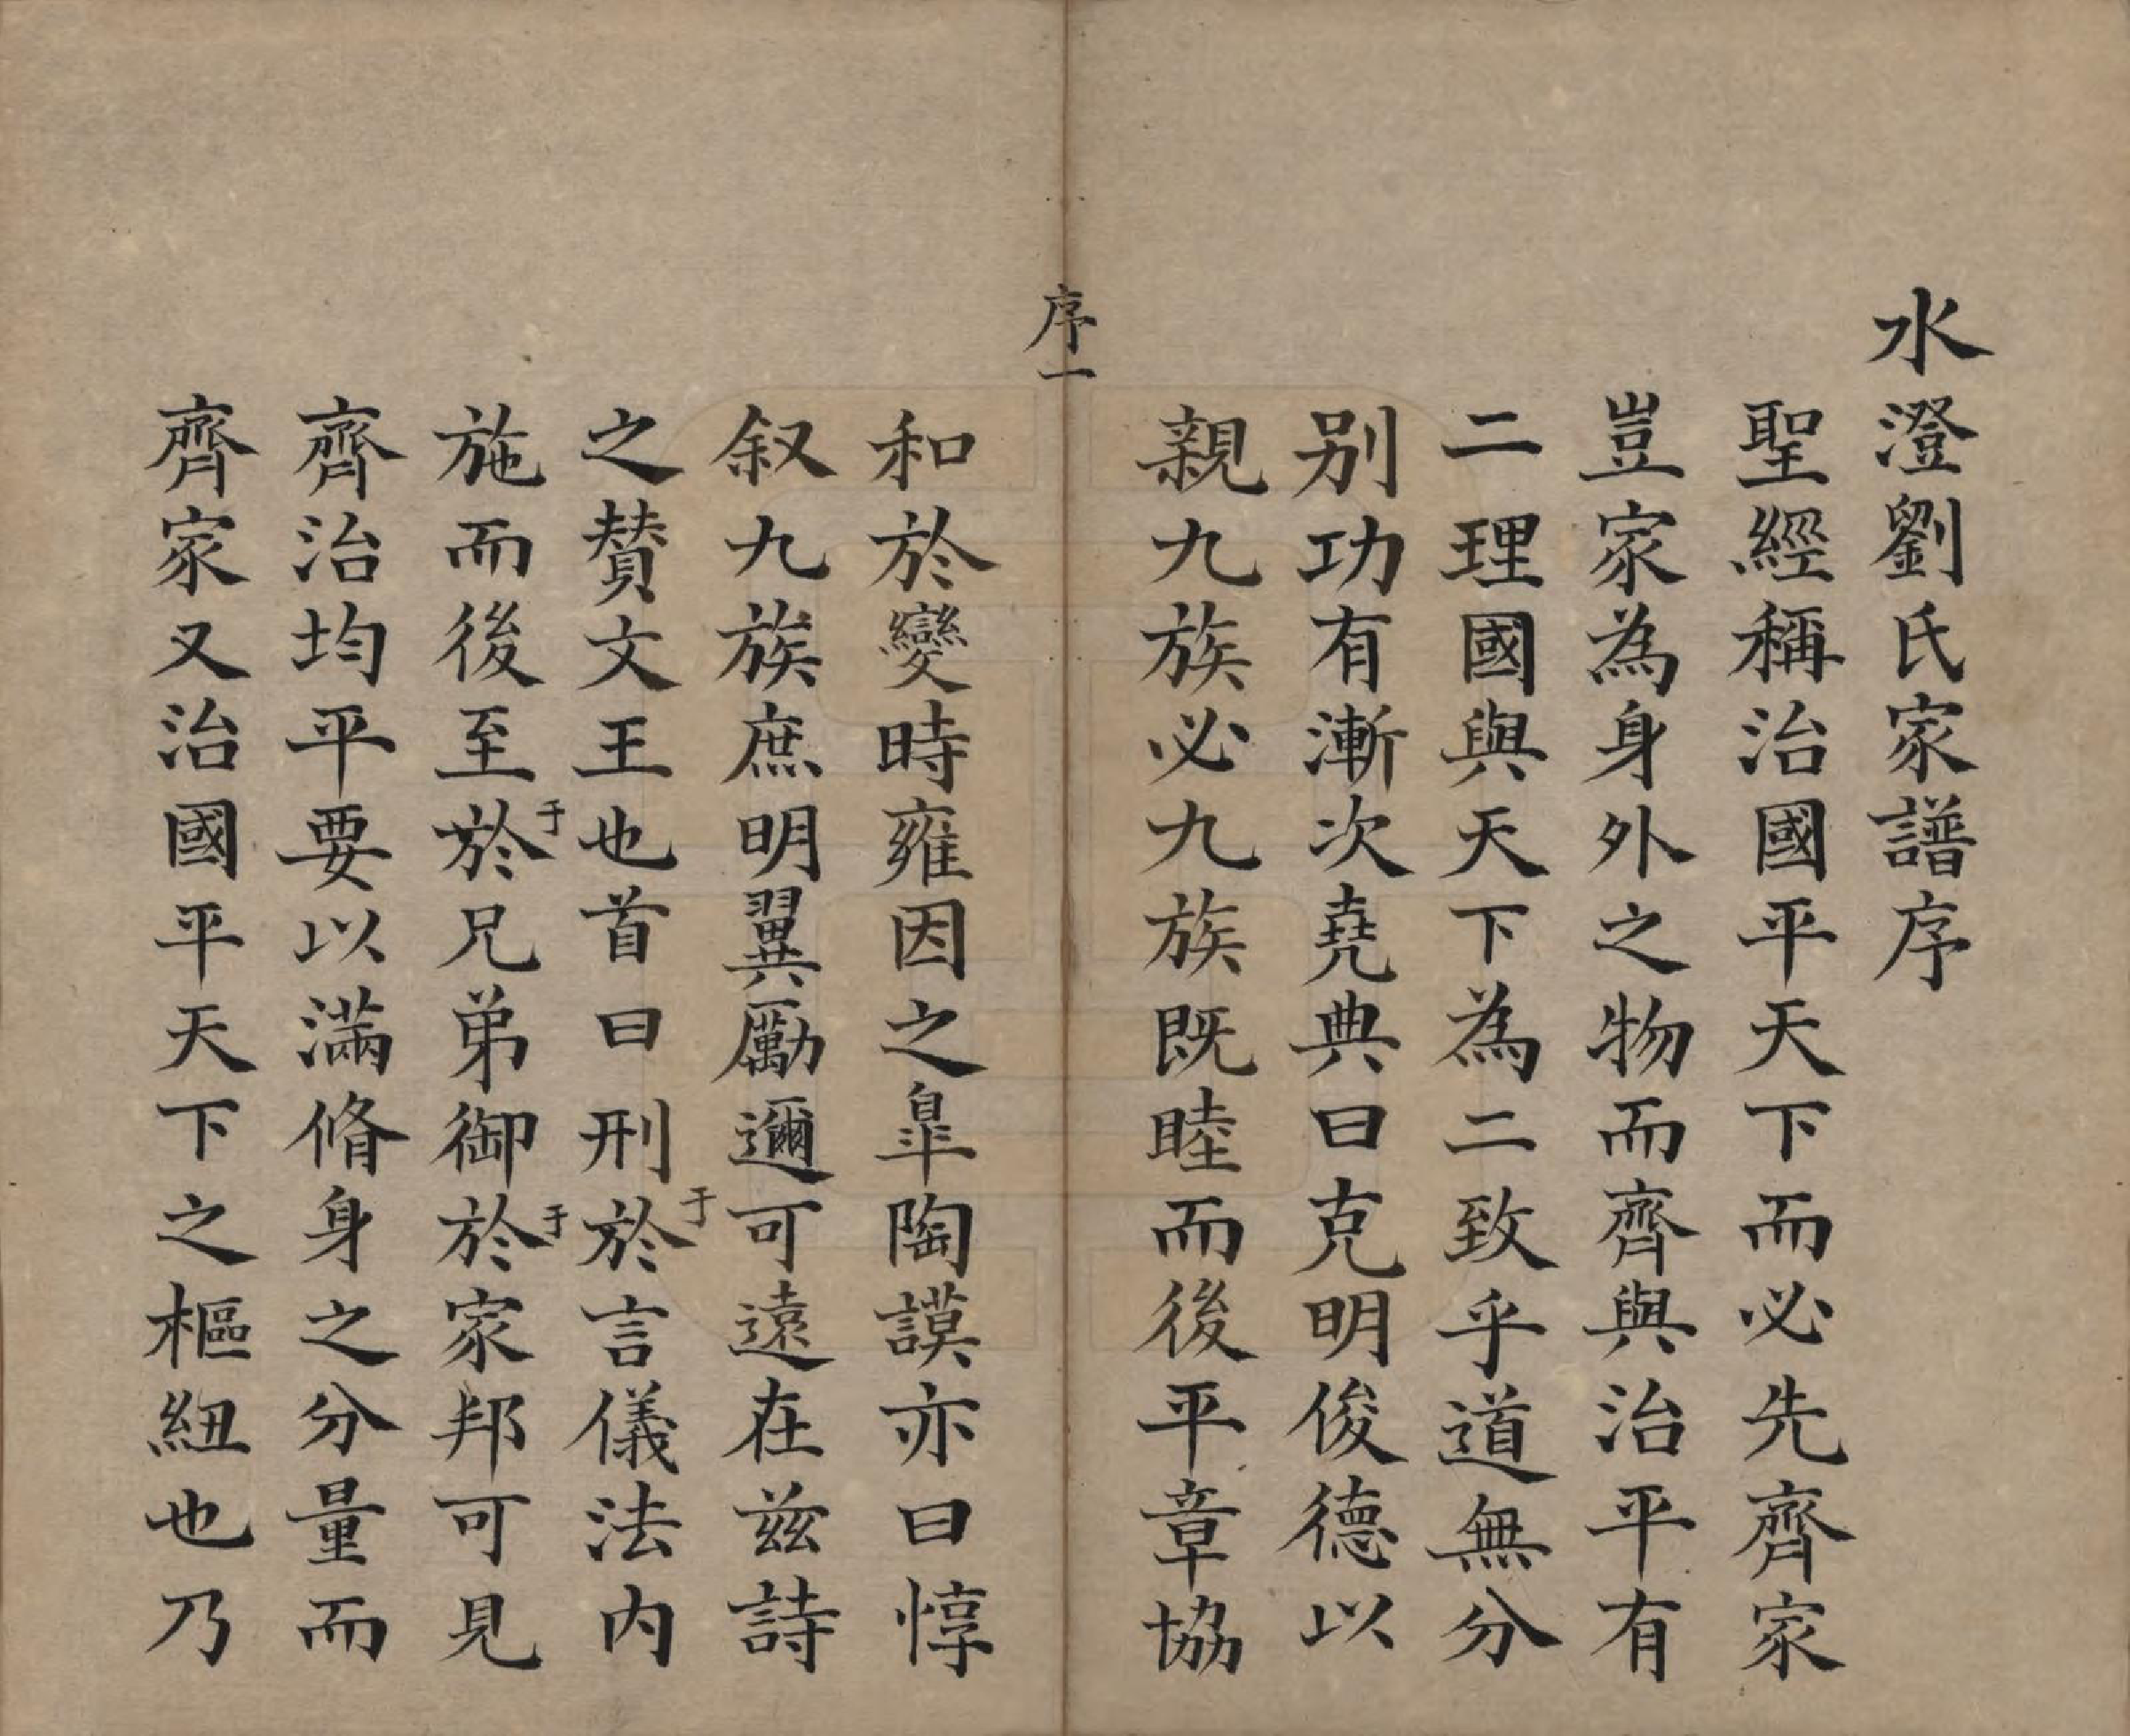 水澄劉氏家譜序
聖經稱治國平天下而必先齊家
豈家為身外之物而齊與治平有
二理國與天下為二致乎道無分
别功有漸次堯典曰克明俊德以
親九族必九族既睦而後平章協
序一
和於變時雍因之臯陶謨亦曰惇
叙九族庶明翼勵邇可遠在茲詩
之賛文王也首曰刑於于言儀法内
施而後至於于兄弟御於于家邦可見
齊治均平要以滿脩身之分量而
齊家又治國平天下之樞紐也乃